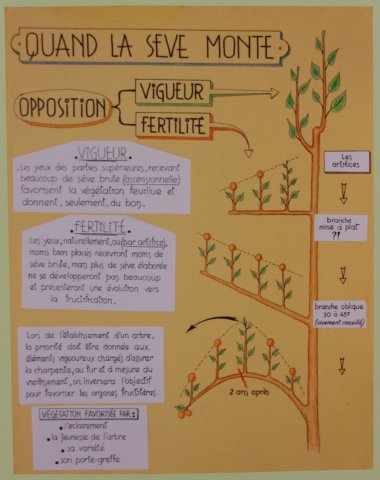 QUAND LA SEVE MONTE
OPPOSITION
VIGUEUR
FERTILITÉ
VIGUEUR
Les yeux des parties supérieures, recevant
beaucoup de sève brute (ascensionnelle)
favorisent la végétation feuillue et
donnent, seulement, du bois.
FERTILITÉ
Les yeux, naturellement, ou (par artifice),
moins bien placés recevront moins de
sève brute, mais plus de sève élaborée
ne se développeront pas beaucoup
et présenteront une évolution vers
la fructification.
Lors de l'établissement d'un arbre,
la priorité doit être donnée aux
éléments vigoureux chargés d'assurer
la charpente, au fur et à mesure du
vieillissement, on inversera l'objectif
pour favoriser les organes fructifères.
VÉGÉTATION FAVORISÉE PAR :
l'éclairement
la jeunesse de l'arbre
sa variété
son porte-greffe
Les
artifices
branche
mise à plat
?!
branche oblique
30 à 45°
(vivement conseillé)
2 ans après